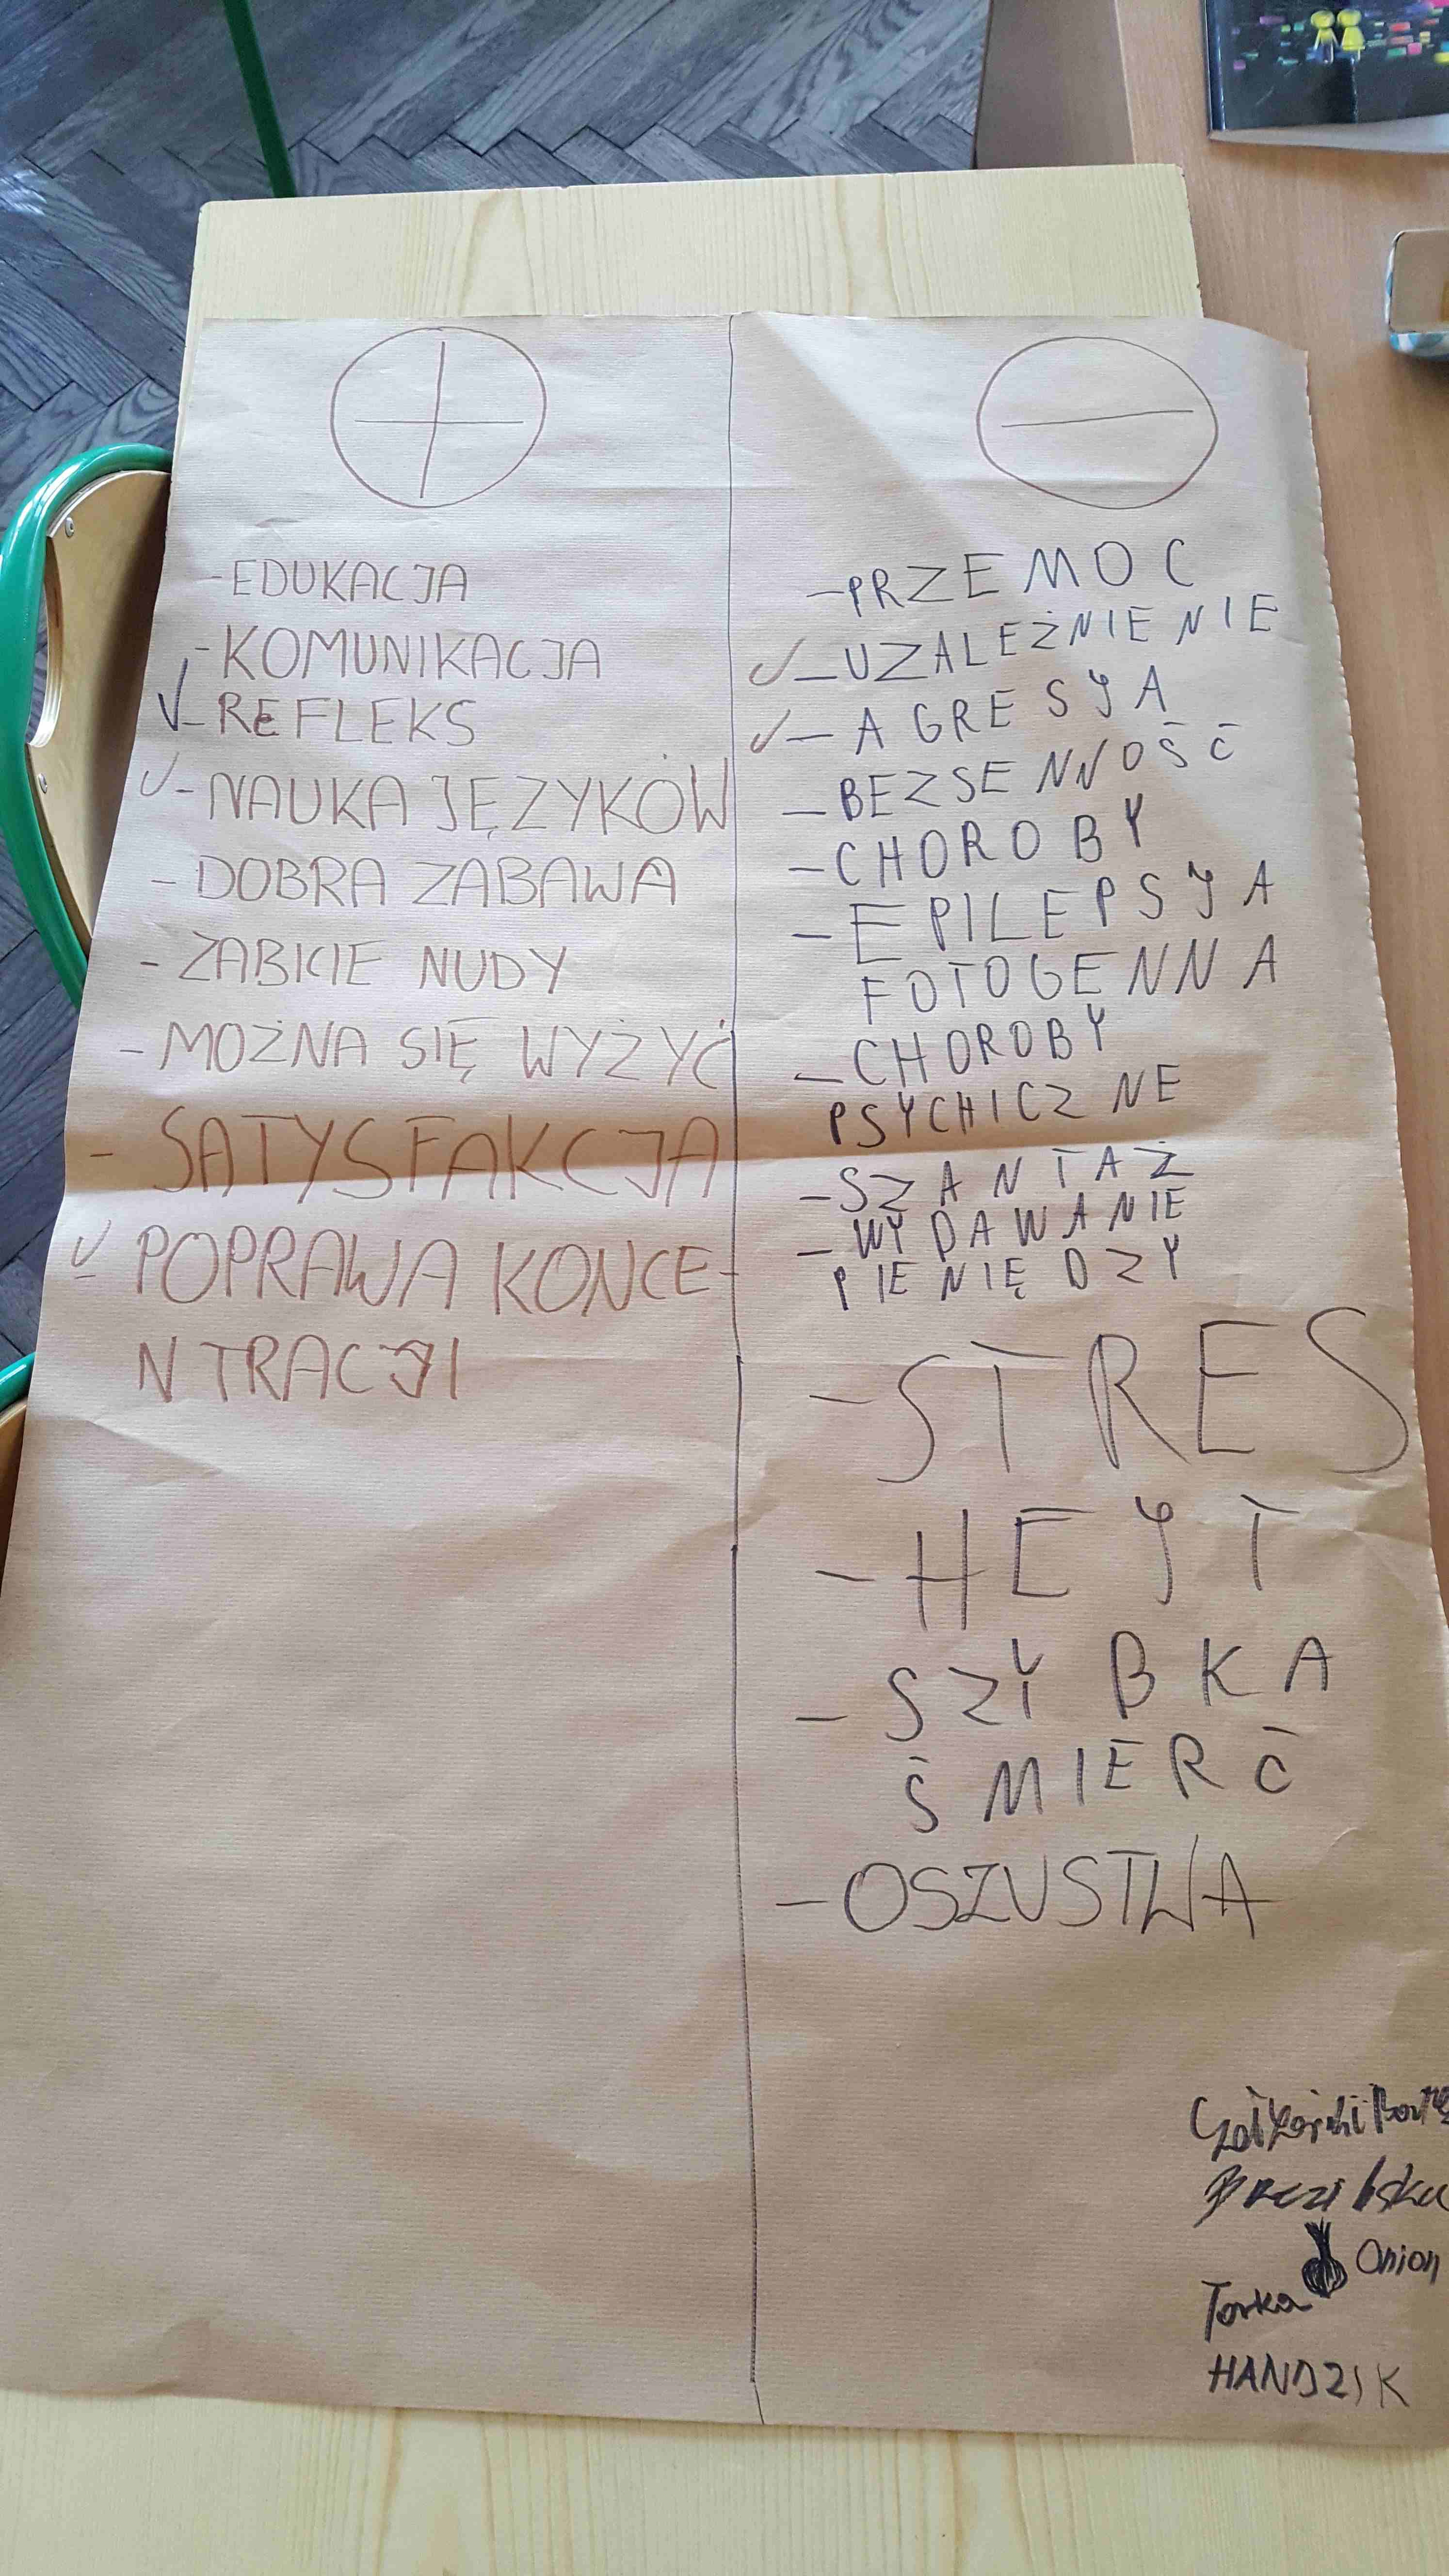 - EDUKACJA
- KOMUNIKACJA
- REFLEKS
- NAUKA JĘZYKÓW
- DOBRA ZABAWA
- ZABICIE NUDY
- MOŻNA SIĘ WYŻYĆ
- SATYSFAKCJA
- POPRAWA KONCE-
NTRACJI
- PRZEMOC
- UZALEŻNIENIE
- AGRESJA
- BEZSENNOŚĆ
- CHOROBY
- EPILEPSJA
FOTOGENNA
- CHOROBY
PSYCHICZNE
- SZANTAŻ
- WYDAWANIE
PIENIĘDZY
- STRES
- HEJT
- SZYBKA
ŚMIERĆ
- OSZUSTWA
Onion
Torka
HANDZIK